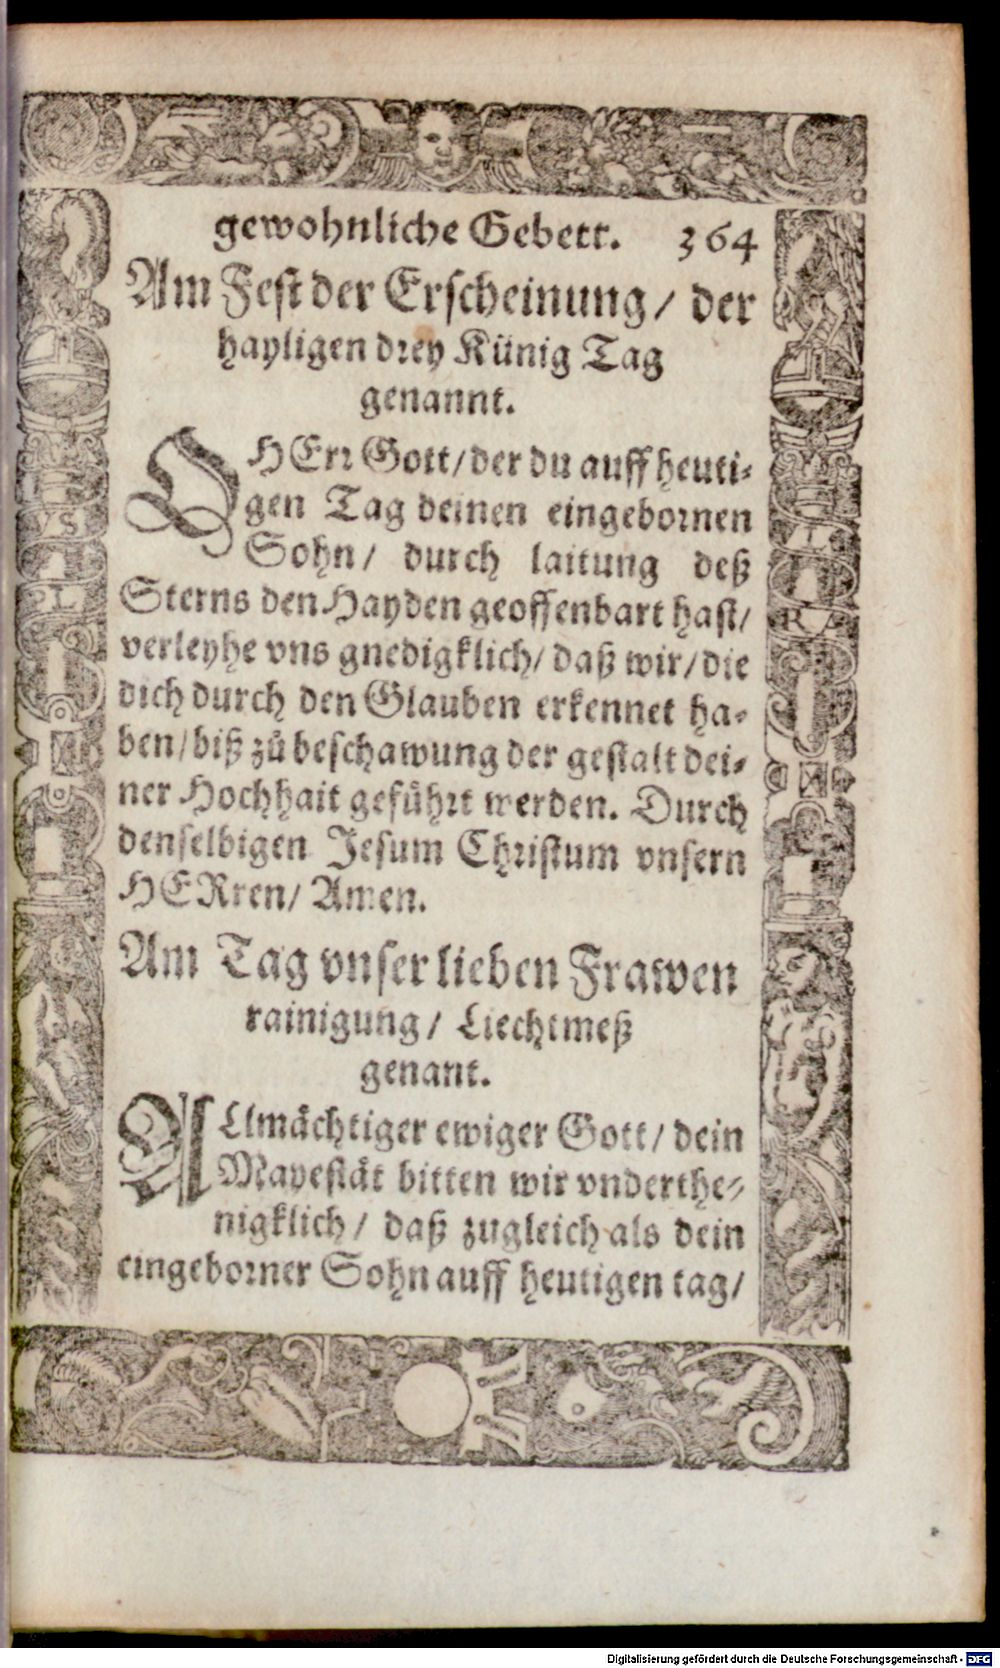 gewohnliche Gebett. 364
Am Fest der Erscheinung/ der
hayligen drey Künig Tag
genannt.
O HErr Gott/ der du auff heuti-
gen Tag deinen eingebornen
Sohn/ durch laitung deß
Sterns den Hayden geoffenbart hast/
verleyhe vns gnedigklich/ daß wir/ die
dich durch den Glauben erkennet ha-
ben/ biß zů beschawung der gestalt dei-
ner Hochhait geführt werden. Durch
denselbigen Jesum Christum vnsern
HERren/ Amen.
Am Tag vnser lieben Frawen
rainigung/ Liechtmeß
genant.
ALlmächtiger ewiger Gott/ dein
Mayestät bitten wir vnderthe-
nigklich/ daß zugleich als dein
eingeborner Sohn auff heutigen tag/
VS
PL
R
Digitalisierung gefördert durch die Deutsche Forschungsgemeinschaft - DFG